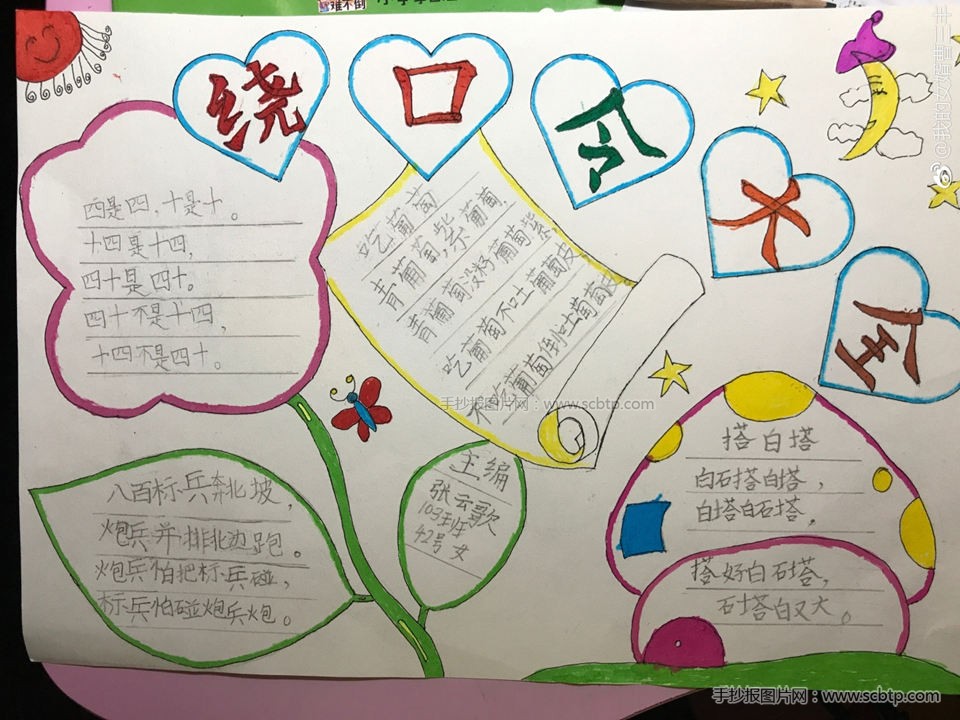 难不倒
绕口令大全
四是四,十是十。
十四是十四,
四十是四十。
四十不是十四,
十四不是四十。
吃葡萄
青葡萄,紫葡萄,
青葡萄没籽葡萄紫,
吃葡萄不吐葡萄皮
不吃葡萄倒吐葡萄皮
手抄报图片网：www.scbtp.com
八百标兵奔北坡,
炮兵并排北边跑。
炮兵怕把标兵碰,
标兵怕碰炮兵炮。
主编
张云歌
103班
42号 女
搭白塔
白石搭白塔,
白塔白石塔,
搭好白石塔,
石塔白又大。
手抄报图片网：www.scbtp.com